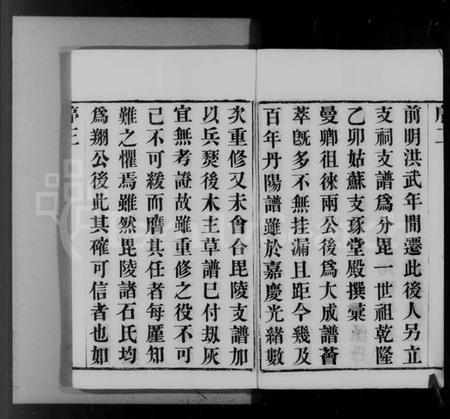 序二
前明洪武年間遷此後人另立
支祠支譜爲分毘一世祖乾隆
乙卯姑蘇支琢堂殿撰彙
曼卿徂徠兩公後爲大成譜薈
萃旣多不無挂漏且距今幾及
百年丹陽譜雖於嘉慶光緒數
次重修又未會合毘陵支譜加
以兵燹後木主草譜已付刼灰
宜無考證故雖重修之役不可
已不可緩而膺其任者每厪知
難之懼焉雖然毘陵諸石氏均
爲翔公後此其確可信者也如
序三